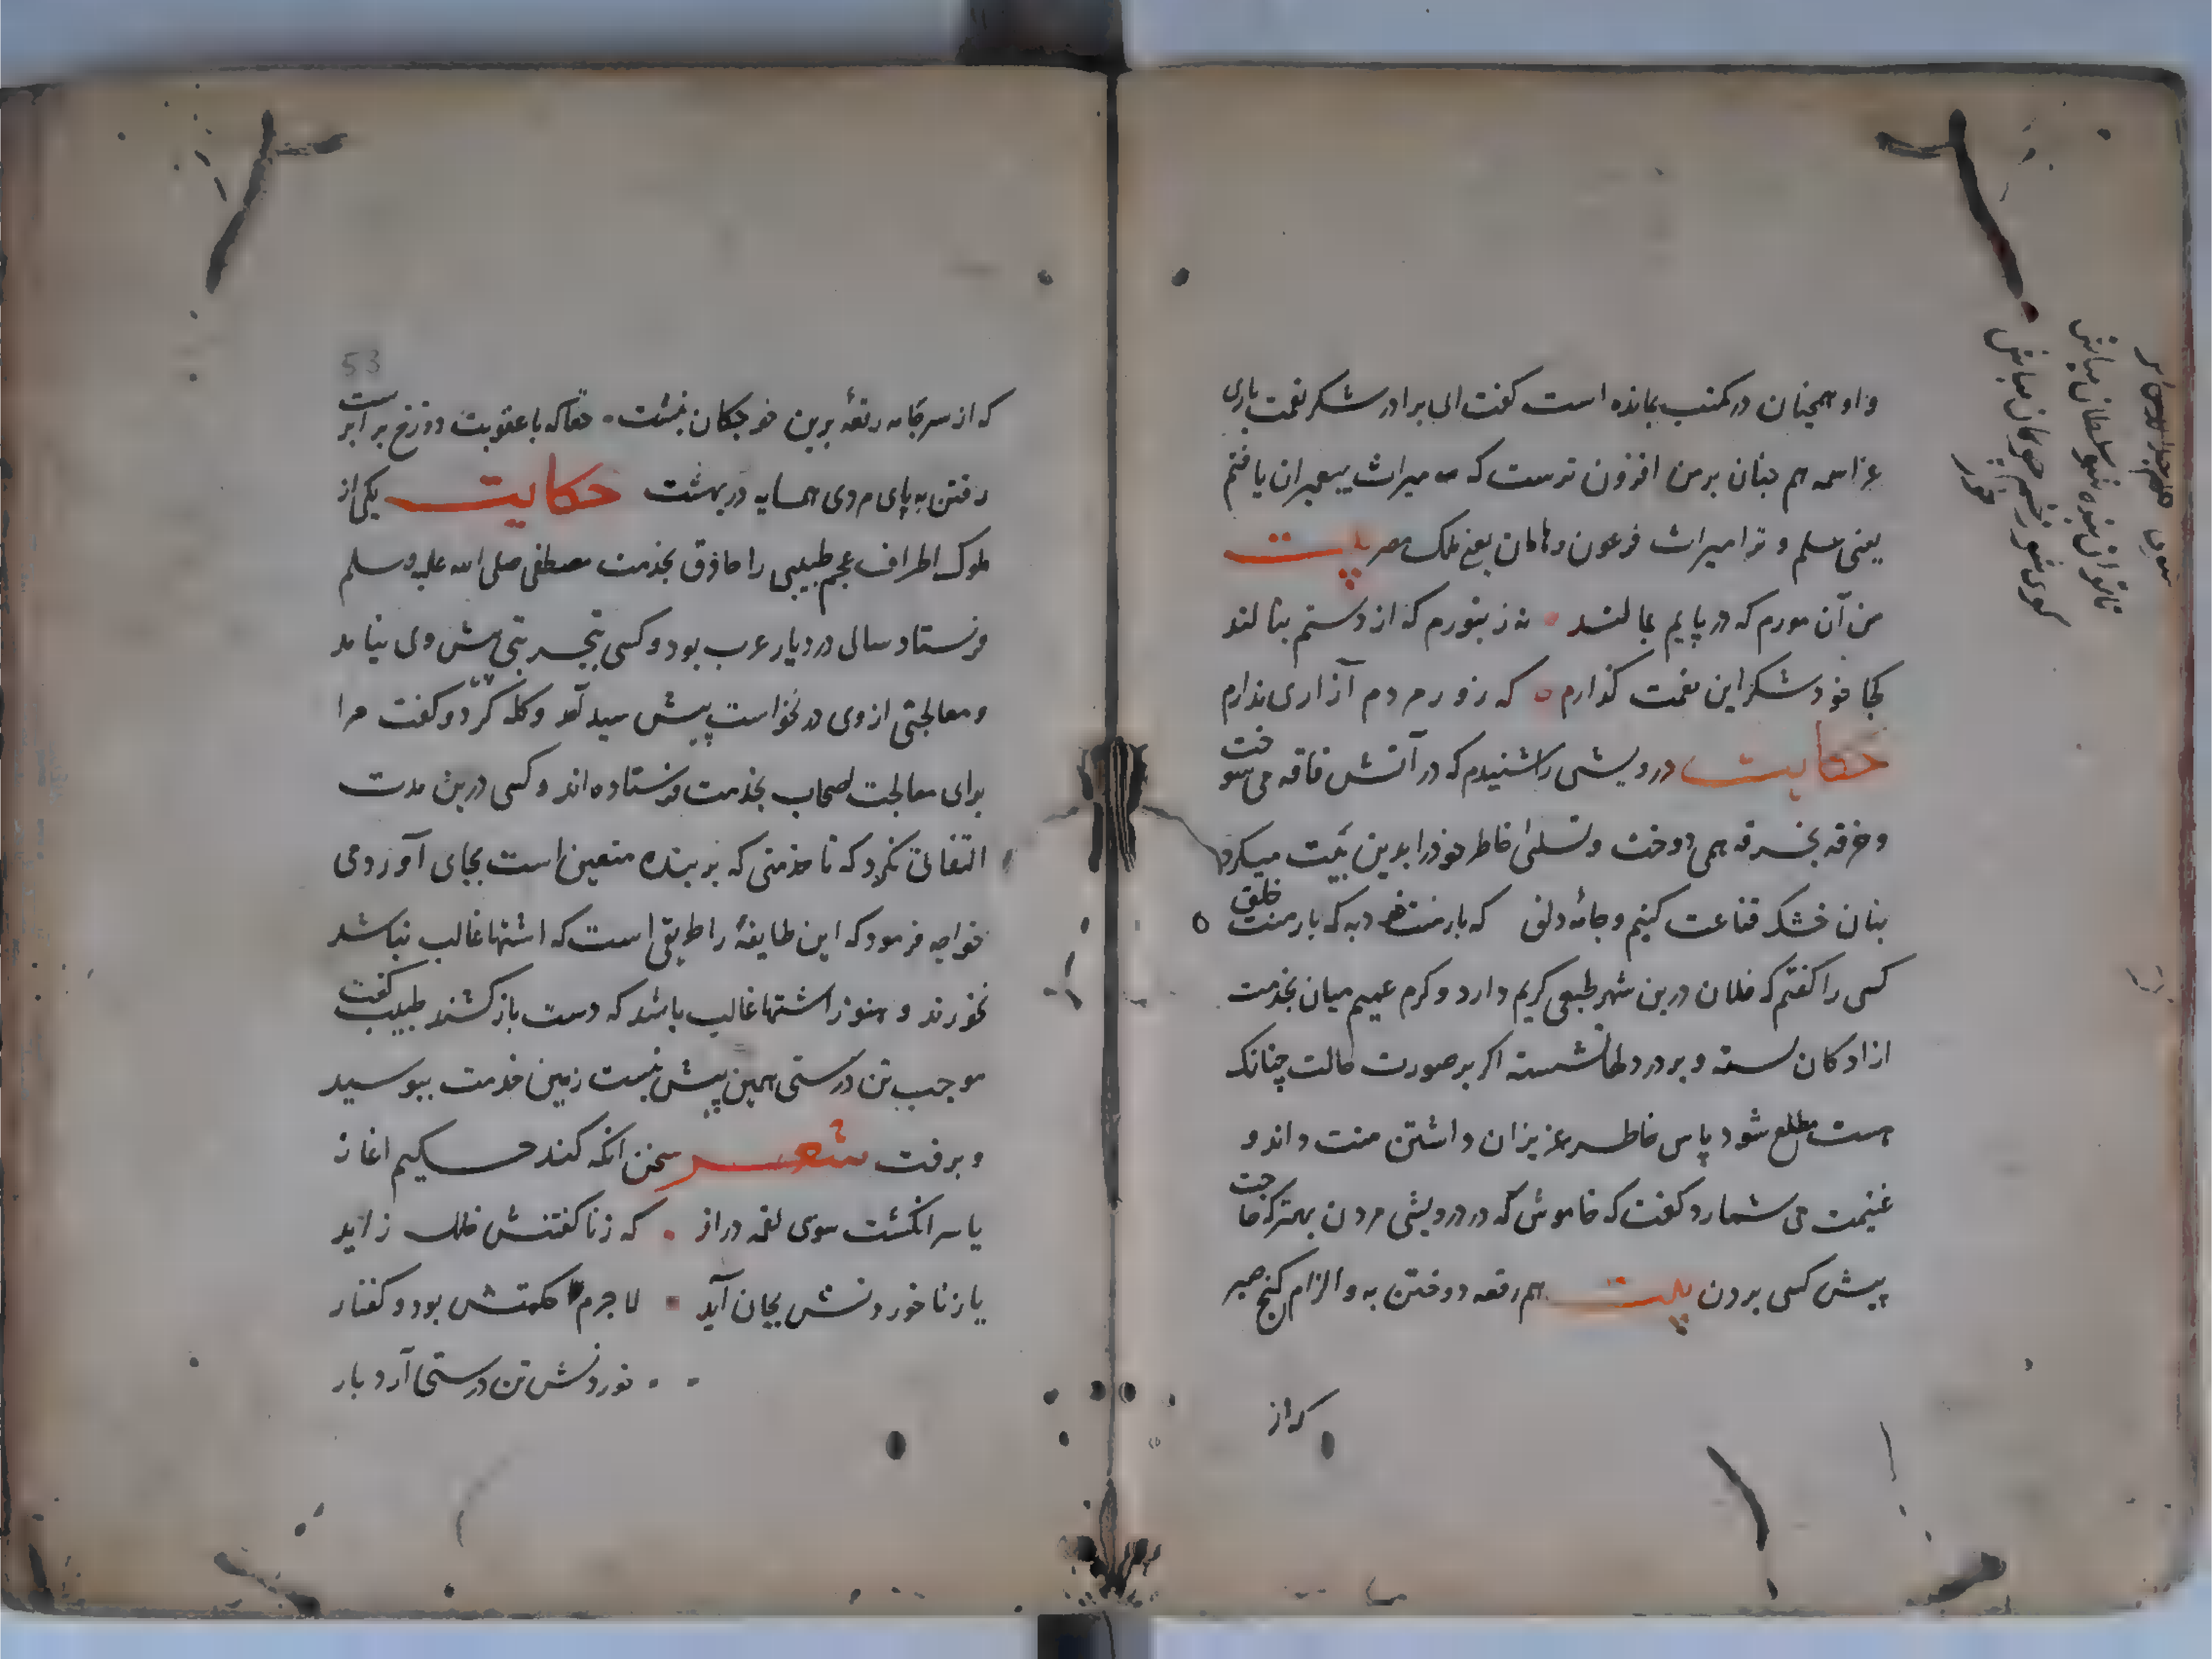 و او همچنان در مکنب بمانده است کفت ای برادر شکر نعمت باری
عز اسمه هم چنان بر من افزون ترست که میراث پیغمبران یافتم
یعنی علم و ترا میراث فرعون و هامان یعنی ملک مصر بیت
من آن مورم که در پایم بمالند نه زنبورم که از دستم بنالند
کجا خود شکر این نعمت کذارم که زور مردم آزاری ندارم
حکایت درویشی را شنیدم که در آتش فاقه می سوخت
و خرقه بخرقه همی دوخت و تسلی خاطر خود را بدین بیت میکرد
بنان خشک قناعت کنیم و جامه دلق که بار منت خود به که بار منت خلق
کسی را کفتم که فلان درین شهر طبعی کریم دارد و کرم عمیم میان بخدمت
ازادکان بسته و بر در دلها نشسته اکر بر صورت حالت چنانک
هست مطلع شود پاس خاطر عزیزان داشتن منت داند و
غنیمت می شمارد کفت که خاموش که در درویشی مردن بهتر که حاجت
پیش کسی بردن بیت هم رقعه دوختن به و الزام کنج صبر
که از
53
که از سر جامه رقعه برین خوجکان نبشت حقا که با عقوبت دوزخ برابر است
رفتن به پای مردی همسایه در بهشت حکایت یکی از
ملوک اطراف عجم طبیبی را حاذق بخدمت مصطفی صلی الله علیه وسلم
فرستاد سالی در دیار عرب بود و کسی بتجربتی پیش وی نیامد
و معالجتی از وی در نخواست پیش سید آمد و کله کرد و کفت مرا
برای معالجت اصحاب بخدمت فرستاده اند و کسی درین مدت
التفاتی نکرد که تا خدمتی که بر بنده متعین است بجای آوردمی
خواجه فرمود که این طایفهٔ را طریقی است که اشتها غالب نباشد
نخورند و هنوز اشتها غالب باشد که دست باز کشند طبیب کفت
موجب تن درستی همین پیش نیست زمین خدمت ببوسید
و برفت شعر سخن انکه کند حکیم اغاز
یا سر انکشت سوی لقمه دراز که زنا کفتنش خلل زاید
یا زنا خوردنش بجان آید لا جرم حکمتش بود و کفتار
خوردنش تن درستی آرد بار